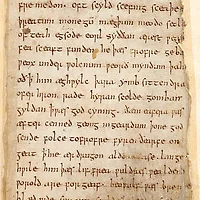 fre medon. oft scyld scefing sceaþe
þreatum monegū mægþum meodo setl
of teah egsode eorl syððan ærest wear
fea sceaft funden he þæs frofre geb
weox under wolcnum weorð myndum þah
oð ꝥ him æghwylc þara ymb sittendra
ofer hron rade hyran scolde gomban
gyldan ꝥ wæs god cyning
æfter cenned geong in geardum þone god
sende folce tofrofre fyren ðearfe on
geat ꝥ hie ær drugon aldor ase. lange
hwile him þæs lif frea wuldres wealdend
worold are for geaf. beowulf wæs breme